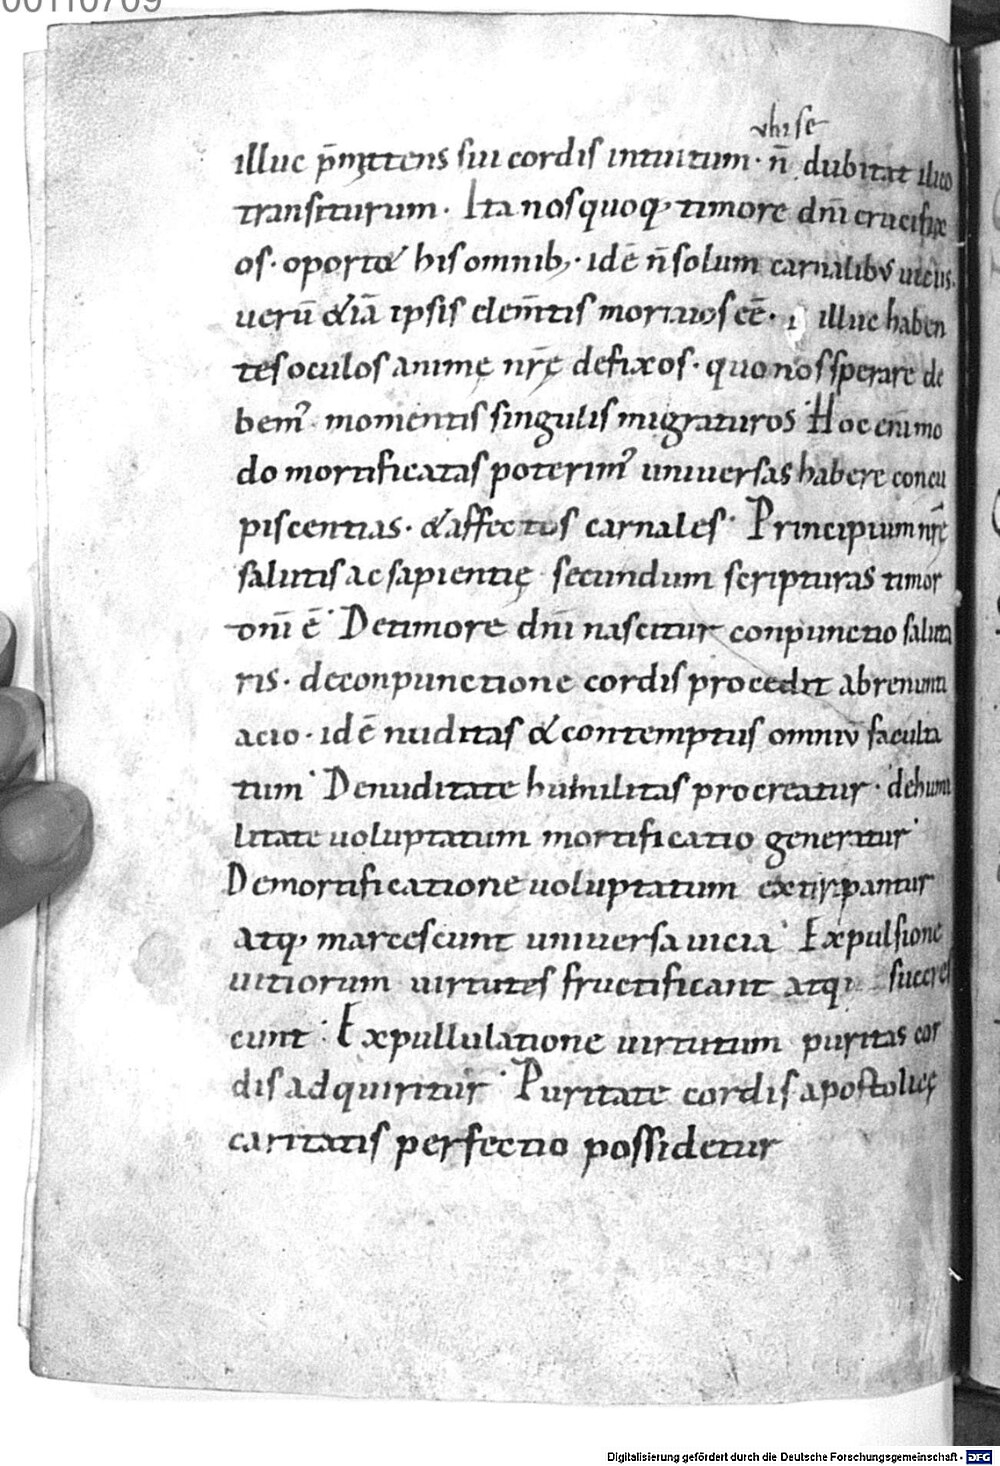 ubi se
illuc p̄mittens sui cordis intuitum· n̄ dubitat ilico
transiturum· Ita nos quoq; timore dn̄i crucifix
os· oportet his omnib;· id ē n̄ solum carnalibus uiciis·
uerū &iā ipsis elem̄tis mortuos eē· illuc haben
tes oculos animę nr̄ę defixos· quo nos sperare de
bem᾿ momentis singulis migraturos· Hoc enim mo
do mortificatas poterim᾿ uniuersas habere concu
piscentias· & affectus carnales· Principium nr̄ę
salutis ac sapientię secundum scripturas timor
dn̄i ē· De timore dn̄i nascitur conpunctio saluta
ris· de conpunctione cordis procedit abrenunti
acio· id ē nuditas & contemptus omniū faculta
tum· De nuditate humilitas procreatur· de humi
litate uoluptatum mortificatio generatur·
De mortificatione uoluptatum extirpantur
atq; marcescunt uniuersa uicia· Expulsione
uitiorum uirtutes fructificant atq; succres
cunt· Ex pullulatione uirtutum puritas cor
dis adquiritur· Puritate cordis apostolicę
caritatis perfectio possidetur
Digitalisierung gefördert durch die Deutsche Forschungsgemeinschaft - DFG